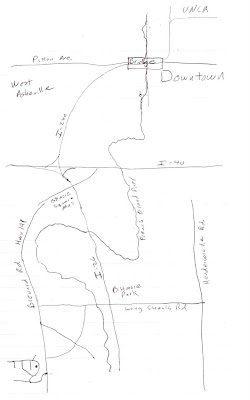 UNCA
Patton Ave.
Bridge
Downtown
West
Asheville
I-240
I-40
French Broad River
Hwy 191
Brevard Rd
I-26
Biltmore
Park
Long Shoals Rd
Hendersonville Rd